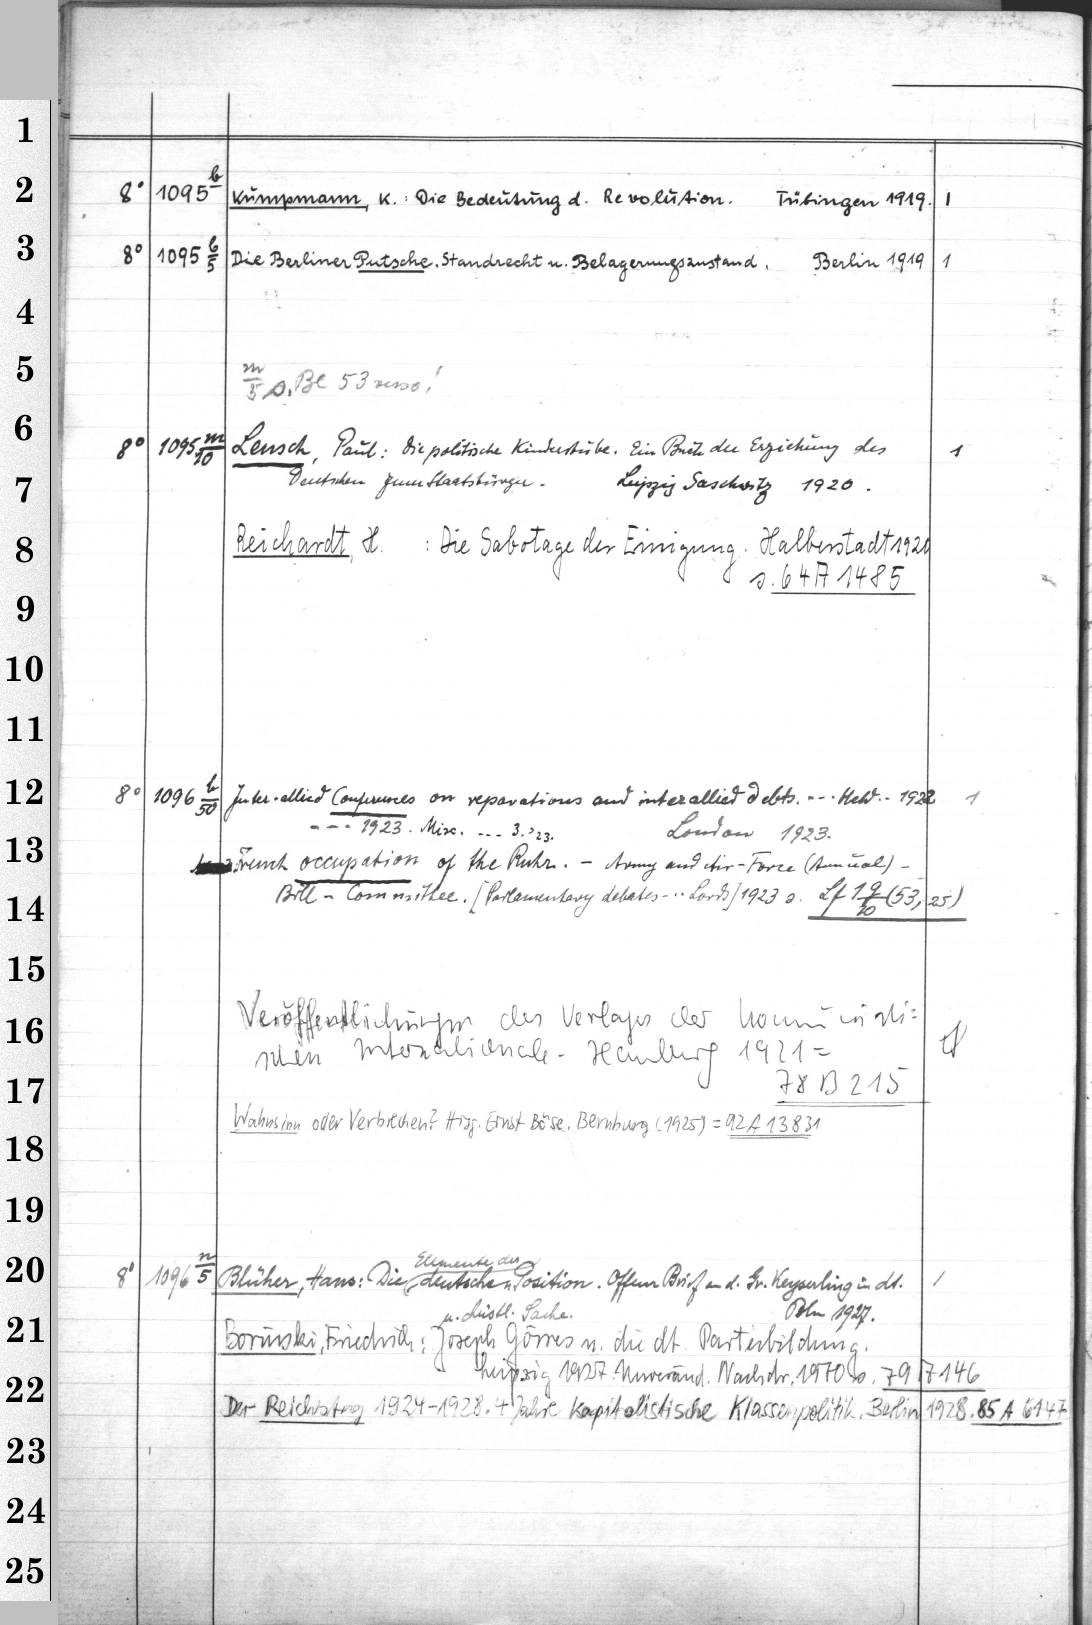 1
2
3
4
5
6
7
8
9
10
11
12
13
14
15
16
17
18
19
20
21
22
23
24
25
8° 1095 b Kumpmann, K.: Die Bedeutung d. Revolution. Tübingen 1919. 1
8° 1095 b/5 Die Berliner Putsche. Standrecht u. Belagerungszustand. Berlin 1919 1
m/5 s. Bl 53 verso!
8° 1095 m/10 Lensch, Paul: Die politische Kinderstube. Ein Buch der Erziehung des 1
Deutschen zum Staatsbürger. Leipzig Gaschwitz 1920.
Reichardt, H. : Die Sabotage der Einigung. Halberstadt 1920
s. 64 A 1485
8° 1096 b/50 Inter-allied Conferences on reparations and interallied debts. --- Held -- 1922 1
--- 1923. Misc. --- 3. '23. London 1923.
French occupation of the Ruhr. - Army and Air-Force (Annual) -
Bill - Committee. [Parlamentary debates --- Lords] 1923 s. Lf 1 q/20 (53, 25)
Veröffentlichungen des Verlages der Kommunisti=
schen Internationale - Hamburg 1921 =
78 B 215
Wahnsinn oder Verbrechen? Hrsg. Ernst Böse. Bernburg (1925) = 92 A 13831
Elemente der
8° 1096 n/5 Blüher, Hans: Die deutsche Position. Offener Brief an d. Gr. Keyserling in dt. 1
u. christl. Sache. Prln 1927.
Borinski, Friedrich: Joseph Görres u. die dt. Parteibildung.
Leipzig 1927. Unveränd. Nachdr. 1970 s. 79 A 7146
Der Reichstag 1924-1928. 4 Jahre kapitalistische Klassenpolitik. Berlin 1928. 85 A 6147